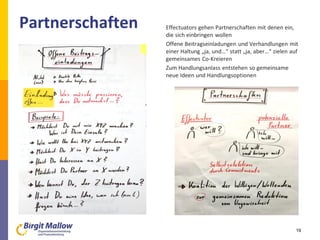 Partnerschaften
Effectuators gehen Partnerschaften mit denen ein,
die sich einbringen wollen
Offene Beitragseinladungen und Verhandlungen mit
einer Haltung „ja, und…" statt „ja, aber…" zielen auf
gemeinsames Co-Kreieren
Zum Handlungsanlass entstehen so gemeinsame
neue Ideen und Handlungsoptionen
Offene Beitrags-
einladungen
Einladung
offen...
Was müsste passieren,
dass Du mitmachst...?
Beispiele:
→ Möchtest Du mit mir XYZ machen?
Was ist Dein Einsatz?
→ Wie wollt Ihr bei XYZ mitmachen?
→ Möchtest Du X in Y beitragen?
→ Hast Du Interesse an X?
→ Möchtest Du Partner in X werden?
→ Wen kennst Du, der Z beitragen kann?
→ Hast Du eine Idee, wen ich (dazu)
fragen könnte...?
Partnerschaften
Effectuator
potenzielle
Partner
wer
will?
ich
will...
ich will...
und bringe mit
Selbstselektion
durch Commitments
→ Koalition der Willigen/Wollenden
zur gemeinsamen Reduktion
von Ungewissheit
Birgit Mallow
18